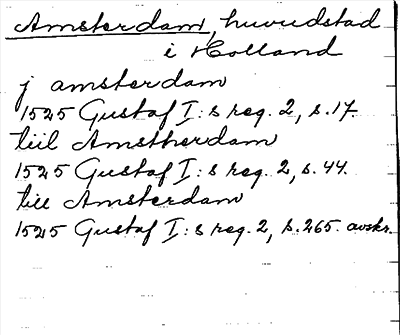 Amsterdam, huvudstad
i Holland
j amsterdam
1525 Gustaf I:s reg. 2, s. 17.
tiil Amstherdam
1525 Gustaf I:s reg. 2, s. 44.
till Amsterdam
1525 Gustaf I:s reg. 2, s. 265. avskr.